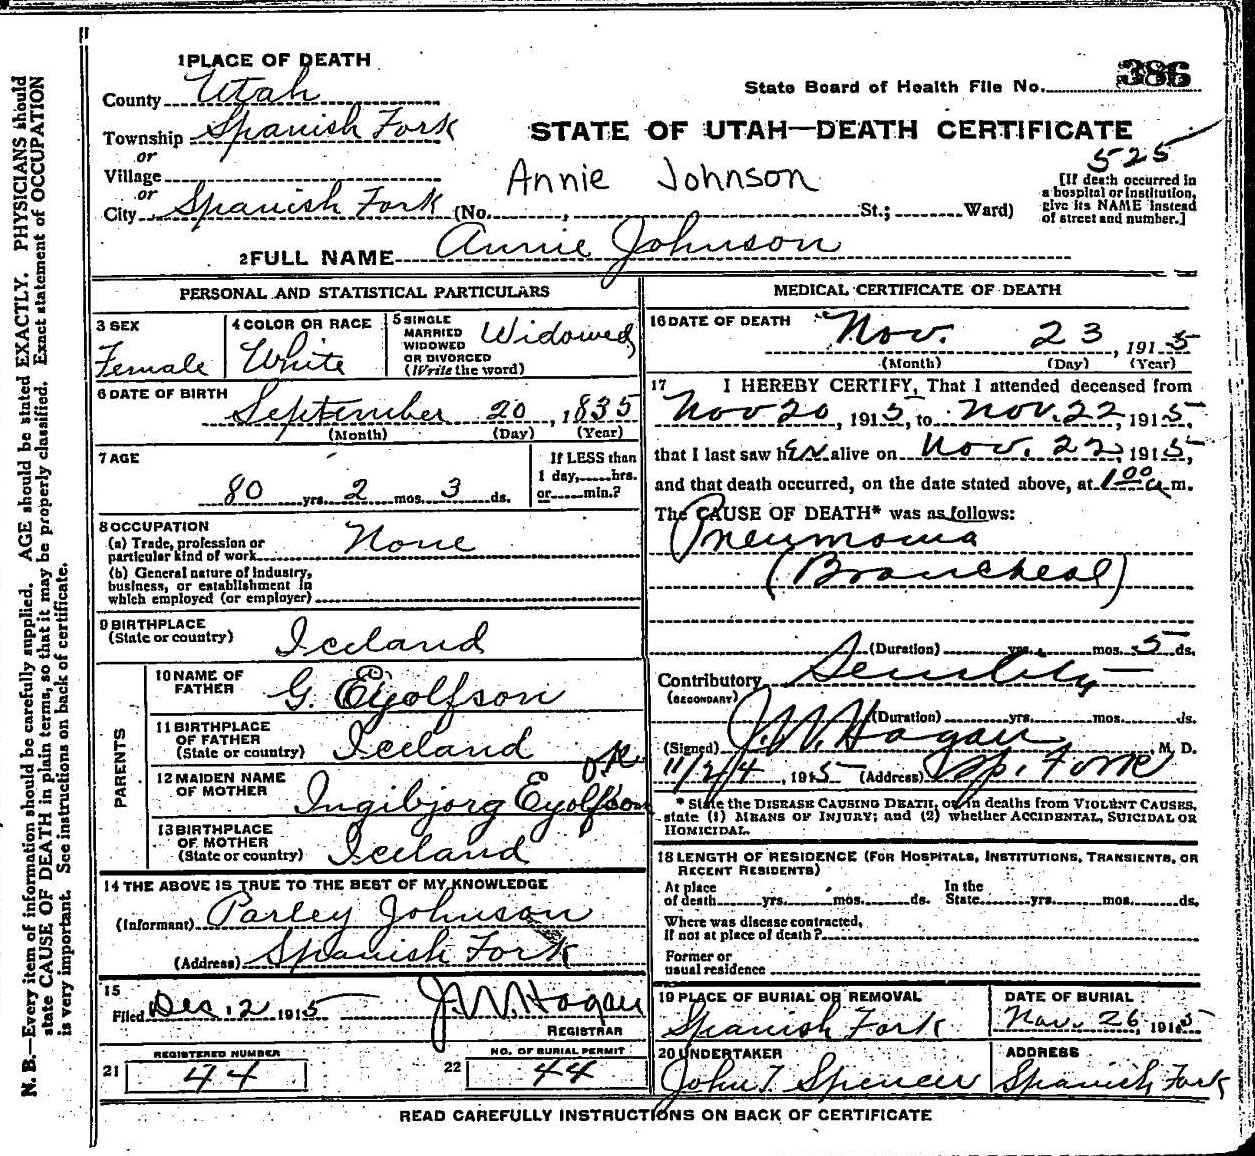 N. B.—Every item of information should be carefully supplied. AGE should be stated EXACTLY. PHYSICIANS should
state CAUSE OF DEATH in plain terms, so that it may be properly classified. Exact statement of OCCUPATION
is very important. See instructions on back of certificate.
1 PLACE OF DEATH
County Utah
Township Spanish Fork
or
Village
or
City Spanish Fork (No. , St.; Ward)
State Board of Health File No. 386
STATE OF UTAH—DEATH CERTIFICATE
525
Annie Johnson
[If death occurred in
a hospital or institution,
give its NAME instead
of street and number.]
2 FULL NAME Annie Johnson
PERSONAL AND STATISTICAL PARTICULARS
3 SEX
Female
4 COLOR OR RACE
White
5 SINGLE
MARRIED
WIDOWED
OR DIVORCED
(Write the word)
Widowed
6 DATE OF BIRTH
September 20, 1835
(Month) (Day) (Year)
7 AGE
80 yrs. 2 mos. 3 ds.
If LESS than
1 day, hrs.
or min.?
8 OCCUPATION
(a) Trade, profession or
particular kind of work None
(b) General nature of industry,
business, or establishment in
which employed (or employer)
9 BIRTHPLACE
(State or country) Iceland
PARENTS
10 NAME OF
FATHER G. Eyolfson
11 BIRTHPLACE
OF FATHER
(State or country) Iceland
12 MAIDEN NAME
OF MOTHER Ingibjorg Eyolfson
13 BIRTHPLACE
OF MOTHER
(State or country) Iceland
14 THE ABOVE IS TRUE TO THE BEST OF MY KNOWLEDGE
(Informant) Parley Johnson
(Address) Spanish Fork
15
Filed Dec. 2 1915 J. W. Hogan
REGISTRAR
21 REGISTERED NUMBER
44
22 NO. OF BURIAL PERMIT
44
MEDICAL CERTIFICATE OF DEATH
16 DATE OF DEATH Nov. 23, 1915
(Month) (Day) (Year)
17 I HEREBY CERTIFY, That I attended deceased from
Nov 20, 1915, to Nov. 22, 1915,
that I last saw her alive on Nov. 22, 1915,
and that death occurred, on the date stated above, at 1:00 a m.
The CAUSE OF DEATH* was as follows:
Pneumonia
(Broncheal)
(Duration) yrs. mos. 5 ds.
Contributory
(SECONDARY)
(Duration) yrs. mos. ds.
(Signed) J. W. Hogan, M. D.
11/24, 1915 (Address) Sp. Fork
* State the DISEASE CAUSING DEATH, or, in deaths from VIOLENT CAUSES,
state (1) MEANS OF INJURY; and (2) whether ACCIDENTAL, SUICIDAL OR
HOMICIDAL.
18 LENGTH OF RESIDENCE (FOR HOSPITALS, INSTITUTIONS, TRANSIENTS, OR
RECENT RESIDENTS)
At place
of death yrs. mos. ds.
In the
State yrs. mos. ds.
Where was disease contracted,
if not at place of death?
Former or
usual residence
19 PLACE OF BURIAL OR REMOVAL
Spanish Fork
DATE OF BURIAL
Nov. 26, 1915
20 UNDERTAKER
John T. Spencer
ADDRESS
Spanish Fork
READ CAREFULLY INSTRUCTIONS ON BACK OF CERTIFICATE